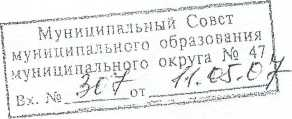 Муниципальный Совет
муниципального образования
муниципального округа № 47
Вх. № 307 от 11.05.07